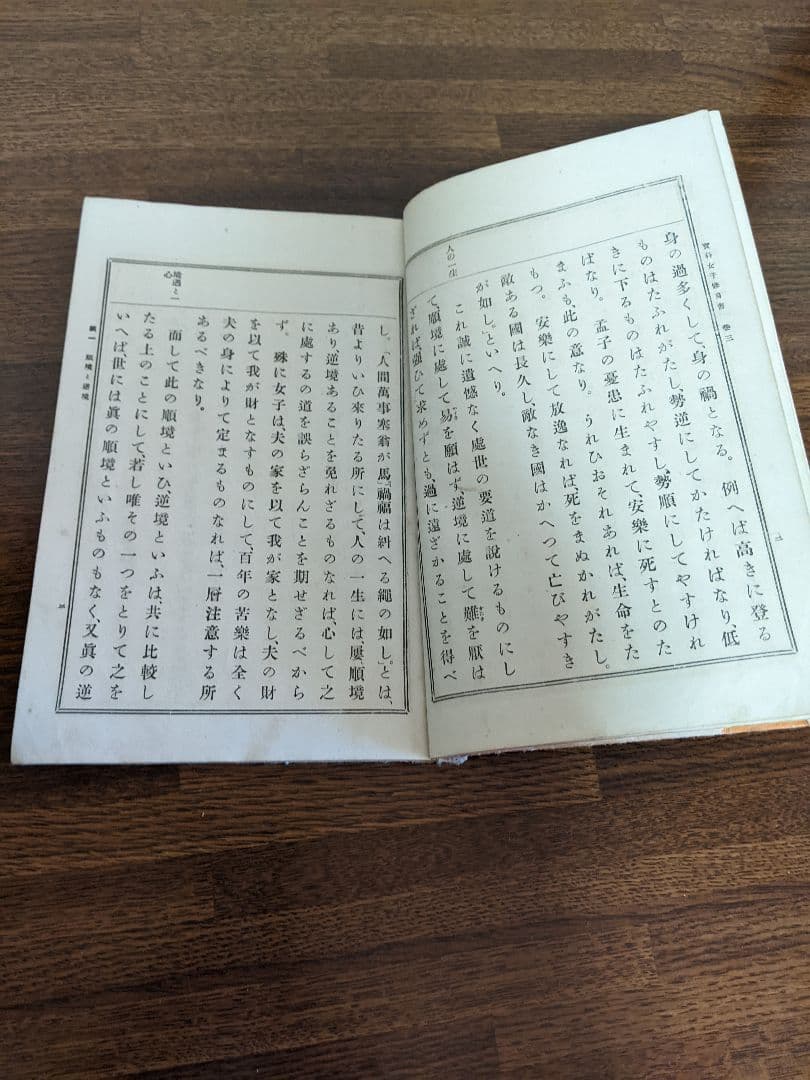 實科女子修身書 卷三
人の一生
身の過多くして、身の禍となる。例へば高きに登る
ものはたふれがたし、勢逆にしてかたければなり、低
きに下るものはたふれやすし、勢順にしてやすけれ
ばなり。孟子の憂患に生まれて、安樂に死すとのた
まふも、此の意なり。うれひおそれあれば、生命をた
もつ。安樂にして放逸なれば死をまぬかれがたし。
敵ある國は長久し、敵なき國はかへつて亡びやすき
が如し。」といへり。
これ誠に遺憾なく處世の要道を說けるものにし
て、順境に處して易を願はず、逆境に處して難を厭は
ざれば、强ひて求めずとも、過に遠ざかることを得べ
し。「人間萬事塞翁が馬」「禍福は糾へる繩の如し。」とは、
昔よりいひ來りたる所にして、人の一生には屢順境
あり逆境あることを免れざるものなれば、心して之
に處するの道を誤らざらんことを期せざるべから
ず。殊に女子は、夫の家を以て我が家となし、夫の財
を以て我が財となすものにして、百年の苦樂は全く
夫の身によりて定まるものなれば、一層注意する所
あるべきなり。
境遇と
心
而して此の順境といひ、逆境といふは共に比較し
たる上のことにして、若し唯その一つをとりて之を
いへば、世には眞の順境といふものもなく、又眞の逆
第一 順境と逆境